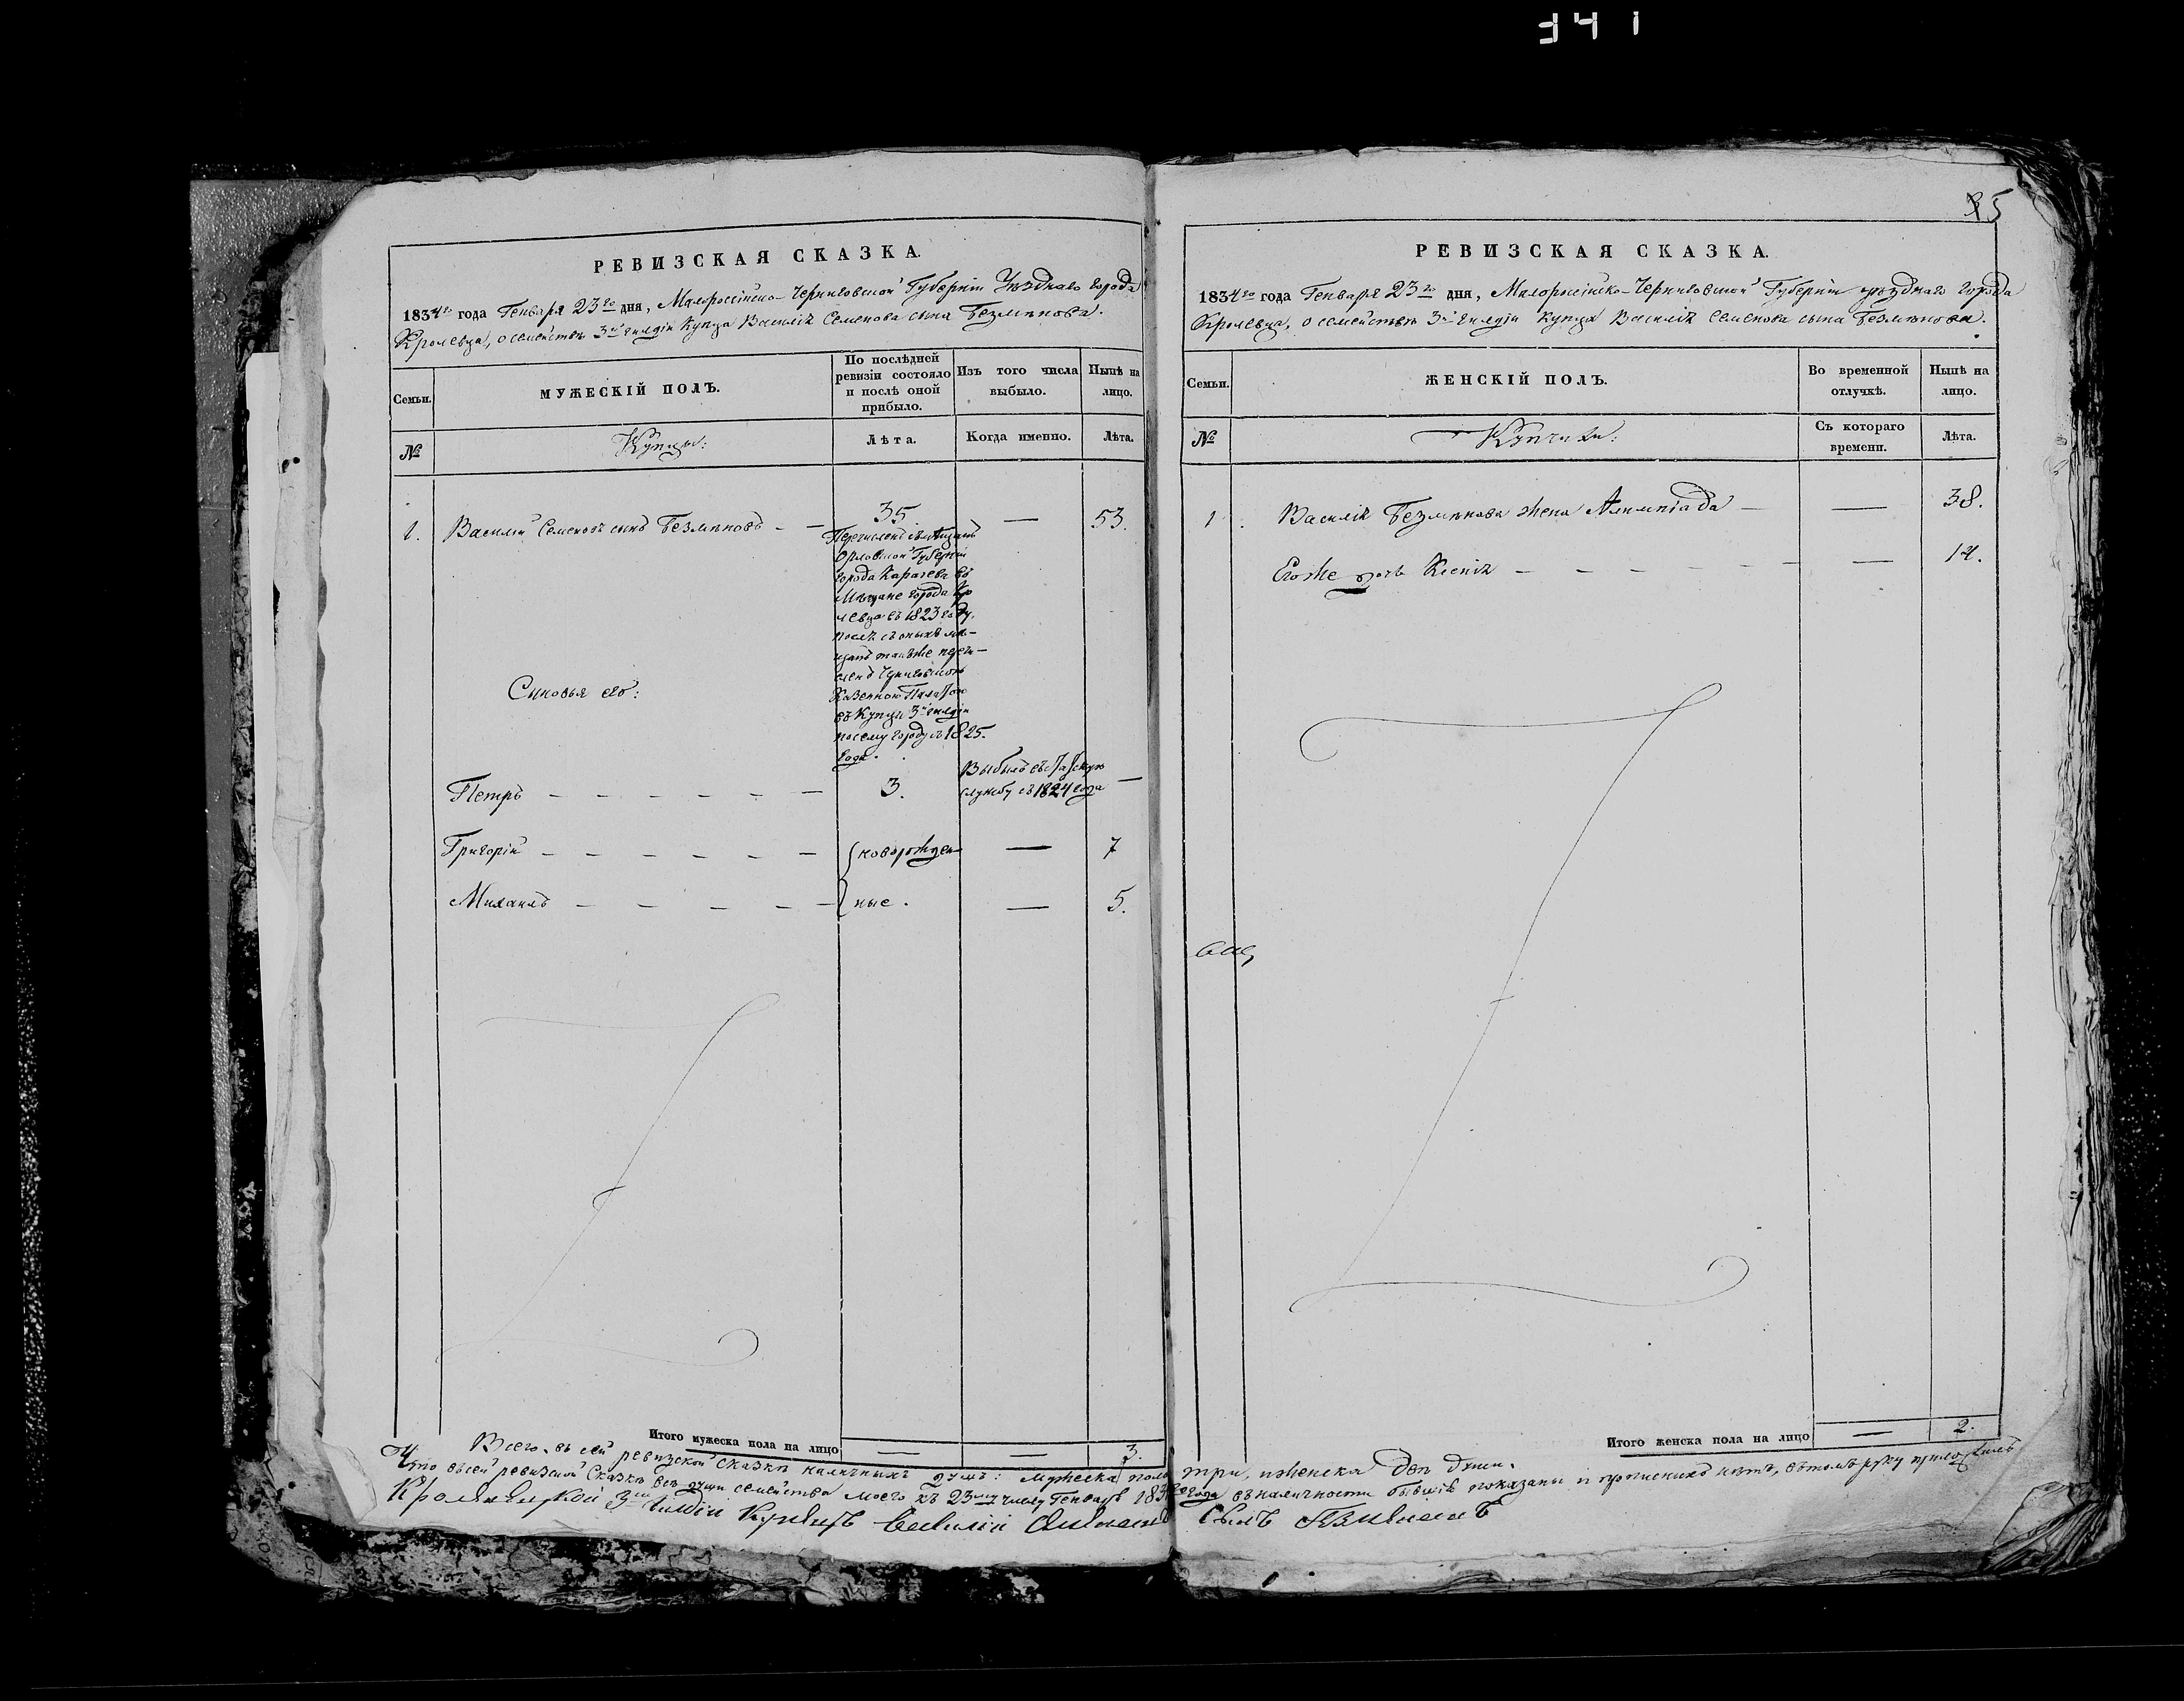 341
РЕВИЗСКАЯ СКАЗКА.
1834го года Генваря 23го дня, Малороссійско-Черниговской Губерніи Уѣзднаго города
Кролевца, о семействѣ 3й гилдіи купца Василія Семенова сына Безмѣнова.
Семьи.
МУЖЕСКІЙ ПОЛЪ.
По послѣдней
ревизіи состояло
и послѣ оной
прибыло.
Изъ того числа
выбыло.
Нынѣ на
лицо.
№
Купцы:
Лѣта.
Когда именно.
Лѣта.
1. Василій Семеновъ сынъ Безмѣновъ — — 35 — 53.
Перечисленъ съ мѣщанъ
Орловской Губерніи
города Карачева въ
Мѣщане города Кро
левца въ 1823 году,
послѣ съ оныхъ мѣ-
щанъ также пере-
сленъ Черниговскою
Казенною Палатою
въ Купцы 3й гилдіи
по сему городу съ 1825.
года.
Сыновья его:
Петръ — — — — — — 3. Выбылъ въ
службу съ 1824 года —
Григорій — — — — — — новорожден- — 7
Михаилъ — — — — — ные. — 5.
Итого мужеска пола на лицо — — 3.
85
РЕВИЗСКАЯ СКАЗКА.
1834го года Генваря 23го дня, Малороссійско-Черниговской Губерніи уѣзднаго города
Кролевца, о семействѣ 3й гилдіи купца Василія Семенова сына Безмѣнова.
Семьи.
ЖЕНСКІЙ ПОЛЪ.
Во временной
отлучкѣ.
Нынѣ на
лицо.
№
Купчихи:
Съ котораго
времени.
Лѣта.
1. Василія Безмѣнова жена Алимпіада — — 38.
Егоже дочь Ксенія — — — — — — 14.
Итого женска пола на лицо — 2.
Всего въ сей ревизской сказкѣ наличныхъ душъ: мужеска пола три, и женска двѣ души.
Что въ сей ревизской сказкѣ всѣ души семейства моего къ 23му числу Генваря 1834го года въ наличности бывшія показаны и прописныхъ нѣтъ, въ томъ руку приложилъ
3й Гилдіи Купецъ Василій Сынъ